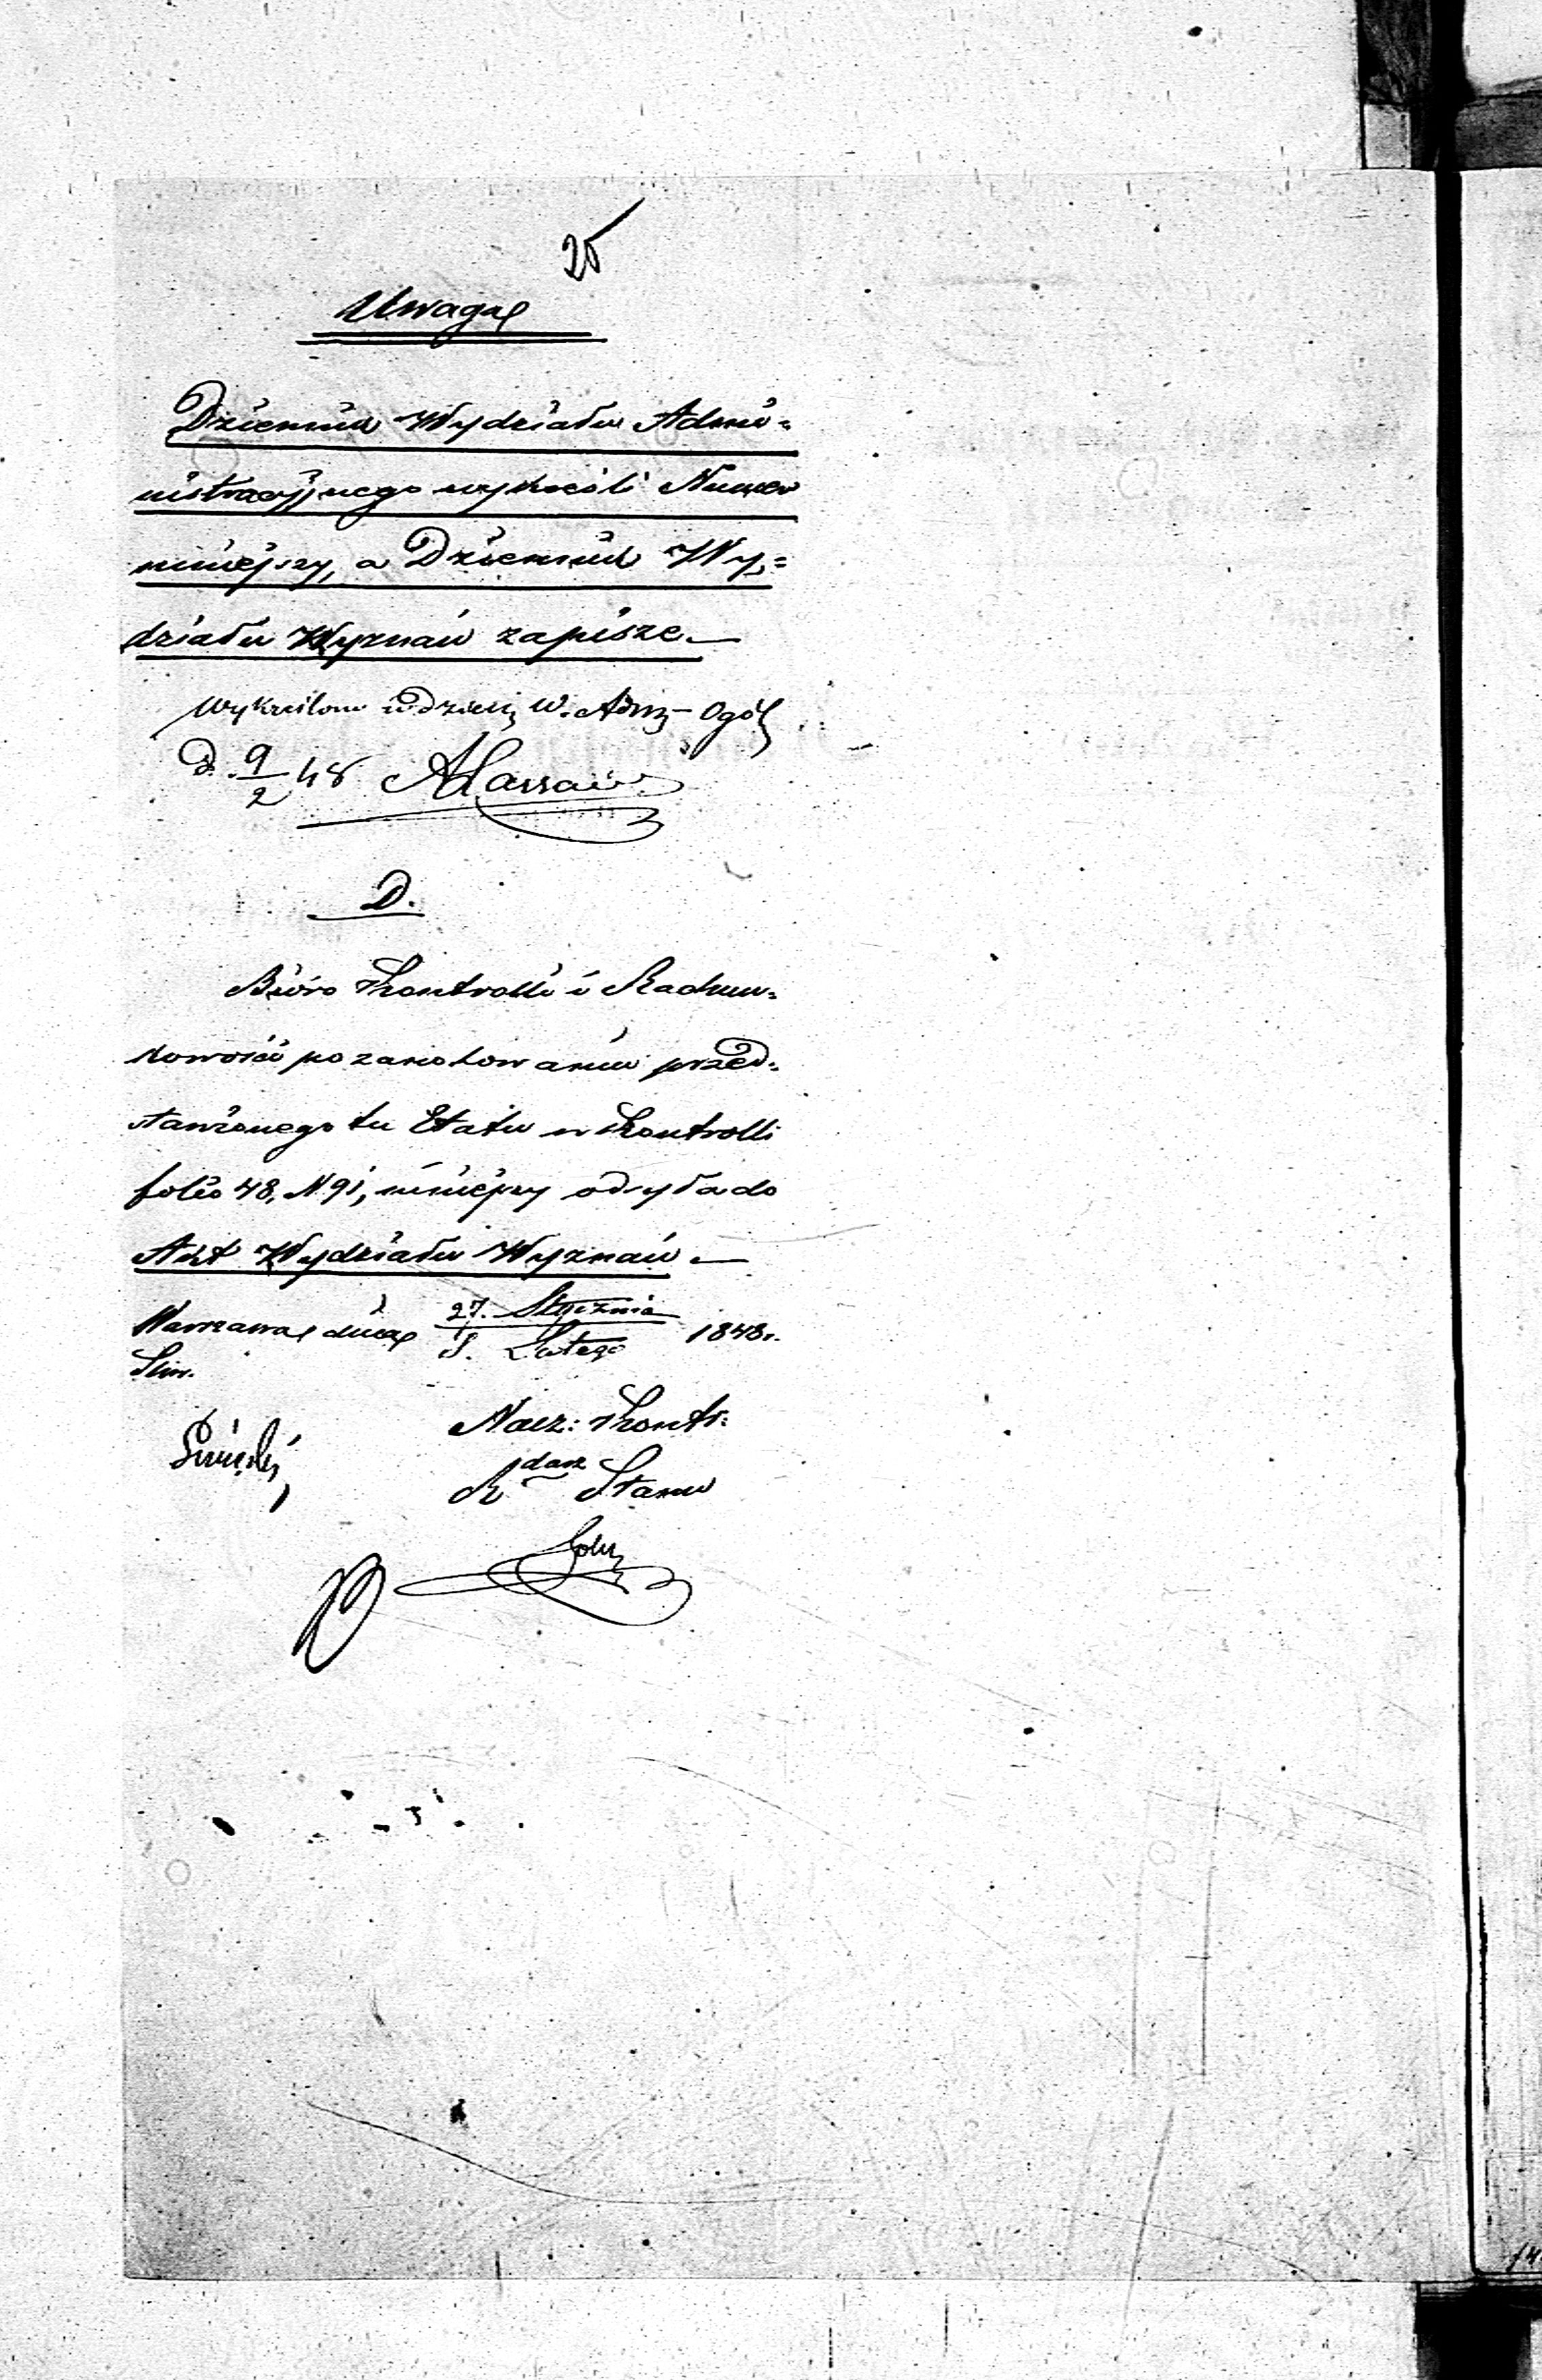 25
Uwaga
Dziennik Wydziału Admi=
nistracyjnego wykreśli Numer
niniejszy, a Dziennik Wy=
działu Wyznań zapisze —
Wykreślono w Dzien: W. Adm: Ogól:
D. 9/2 48
D.
Biuro Kontrolli i Rachun=
kowości po zanotowaniu przed=
stawionego tu Etatu w Kontrolli
folio 48, N 91, niniejszy odsyła do
Akt Wydziału Wyznań —
Warszawa dnia 27. Stycznia / 8. Lutego 1848 r.
Naez: Kontr:
R dca Stanu